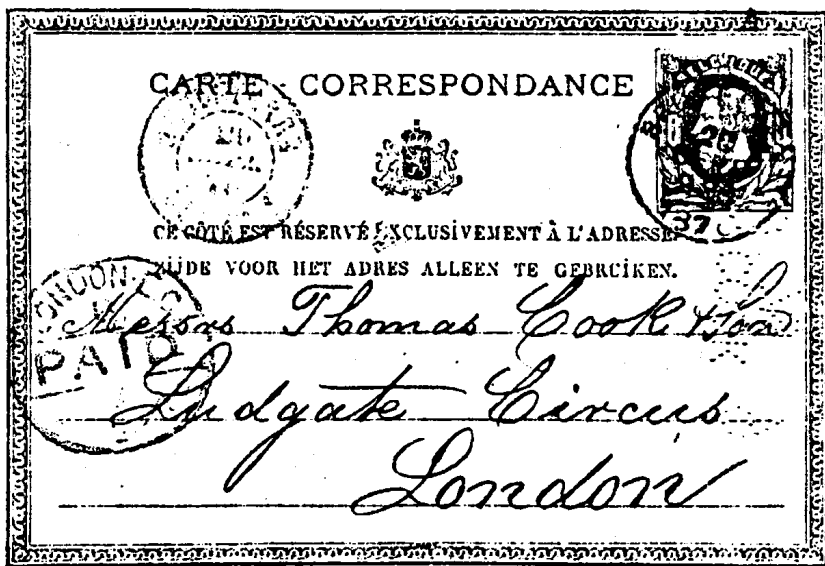 CARTE - CORRESPONDANCE
CE CÔTÉ EST RÉSERVÉ EXCLUSIVEMENT À L'ADRESSE
ZIJDE VOOR HET ADRES ALLEEN TE GEBRUIKEN.
LONDON
PAID
Messrs Thomas Cook & Son
Ludgate Circus
London